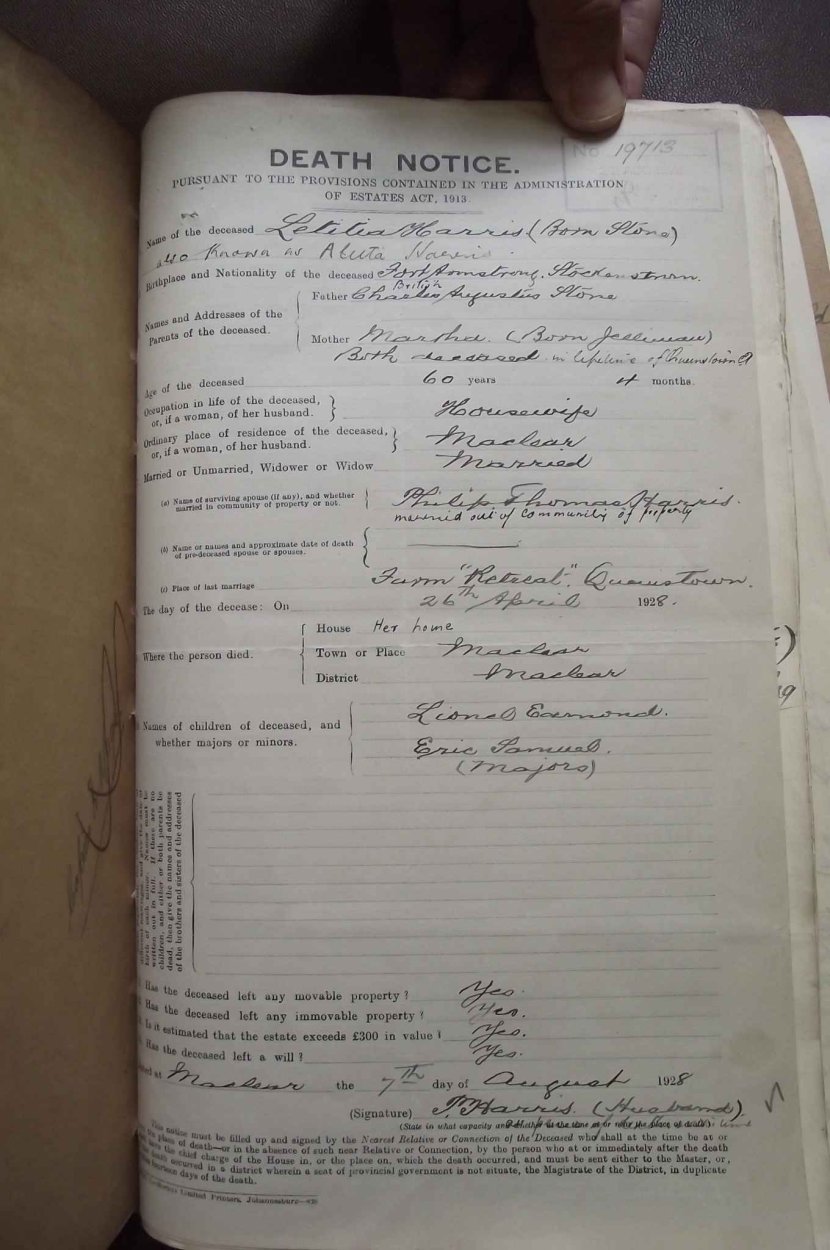 No 19713
DEATH NOTICE.
PURSUANT TO THE PROVISIONS CONTAINED IN THE ADMINISTRATION
OF ESTATES ACT, 1913.
Name of the deceased Letitia Harris (Born Stone)
also Known as Harris
Birthplace and Nationality of the deceased Fort Armstrong. Stockenstrom.
British
Names and Addresses of the Parents of the deceased.
Father Charles Augustus Stone
Mother Martha. (Born Jelliman)
Both deceased in lifetime of Queenstown
Age of the deceased 60 years 4 months.
Occupation in life of the deceased,
or, if a woman, of her husband. Housewife
Ordinary place of residence of the deceased,
or, if a woman, of her husband. Maclear
Married or Unmarried, Widower or Widow Married
(a) Name of surviving spouse (if any), and whether
married in community of property or not. Philip Thomas Harris.
married out of community of property
(b) Name or names and approximate date of death
of pre-deceased spouse or spouses.
(c) Place of last marriage Farm "Retreat", Queenstown.
The day of the decease: On 26th April 1928.
Where the person died.
House Her home
Town or Place Maclear
District Maclear
Names of children of deceased, and
whether majors or minors.
Lionel Esmond.
Eric Samuel.
(Majors)
birth of each minor. Names must be
written out in full. If there are no
children, and either or both parents be
dead, then give the names and addresses
of the brothers and sisters of the deceased
Has the deceased left any movable property? Yes.
Has the deceased left any immovable property? Yes.
Is it estimated that the estate exceeds £300 in value? Yes.
Has the deceased left a will? Yes.
Maclear the 7th day of August 1928
(Signature) P. Harris. (Husband)
(State in what capacity and whether at the time at or near the place of death)
This notice must be filled up and signed by the Nearest Relative or Connection of the Deceased who shall at the time be at or
the place of death—or in the absence of such near Relative or Connection, by the person who at or immediately after the death
the chief charge of the House in, or the place on, which the death occurred, and must be sent either to the Master, or,
death occurred in a district wherein a seat of provincial government is not situate, the Magistrate of the District, in duplicate
fourteen days of the death.
Limited Printers, Johannesburg